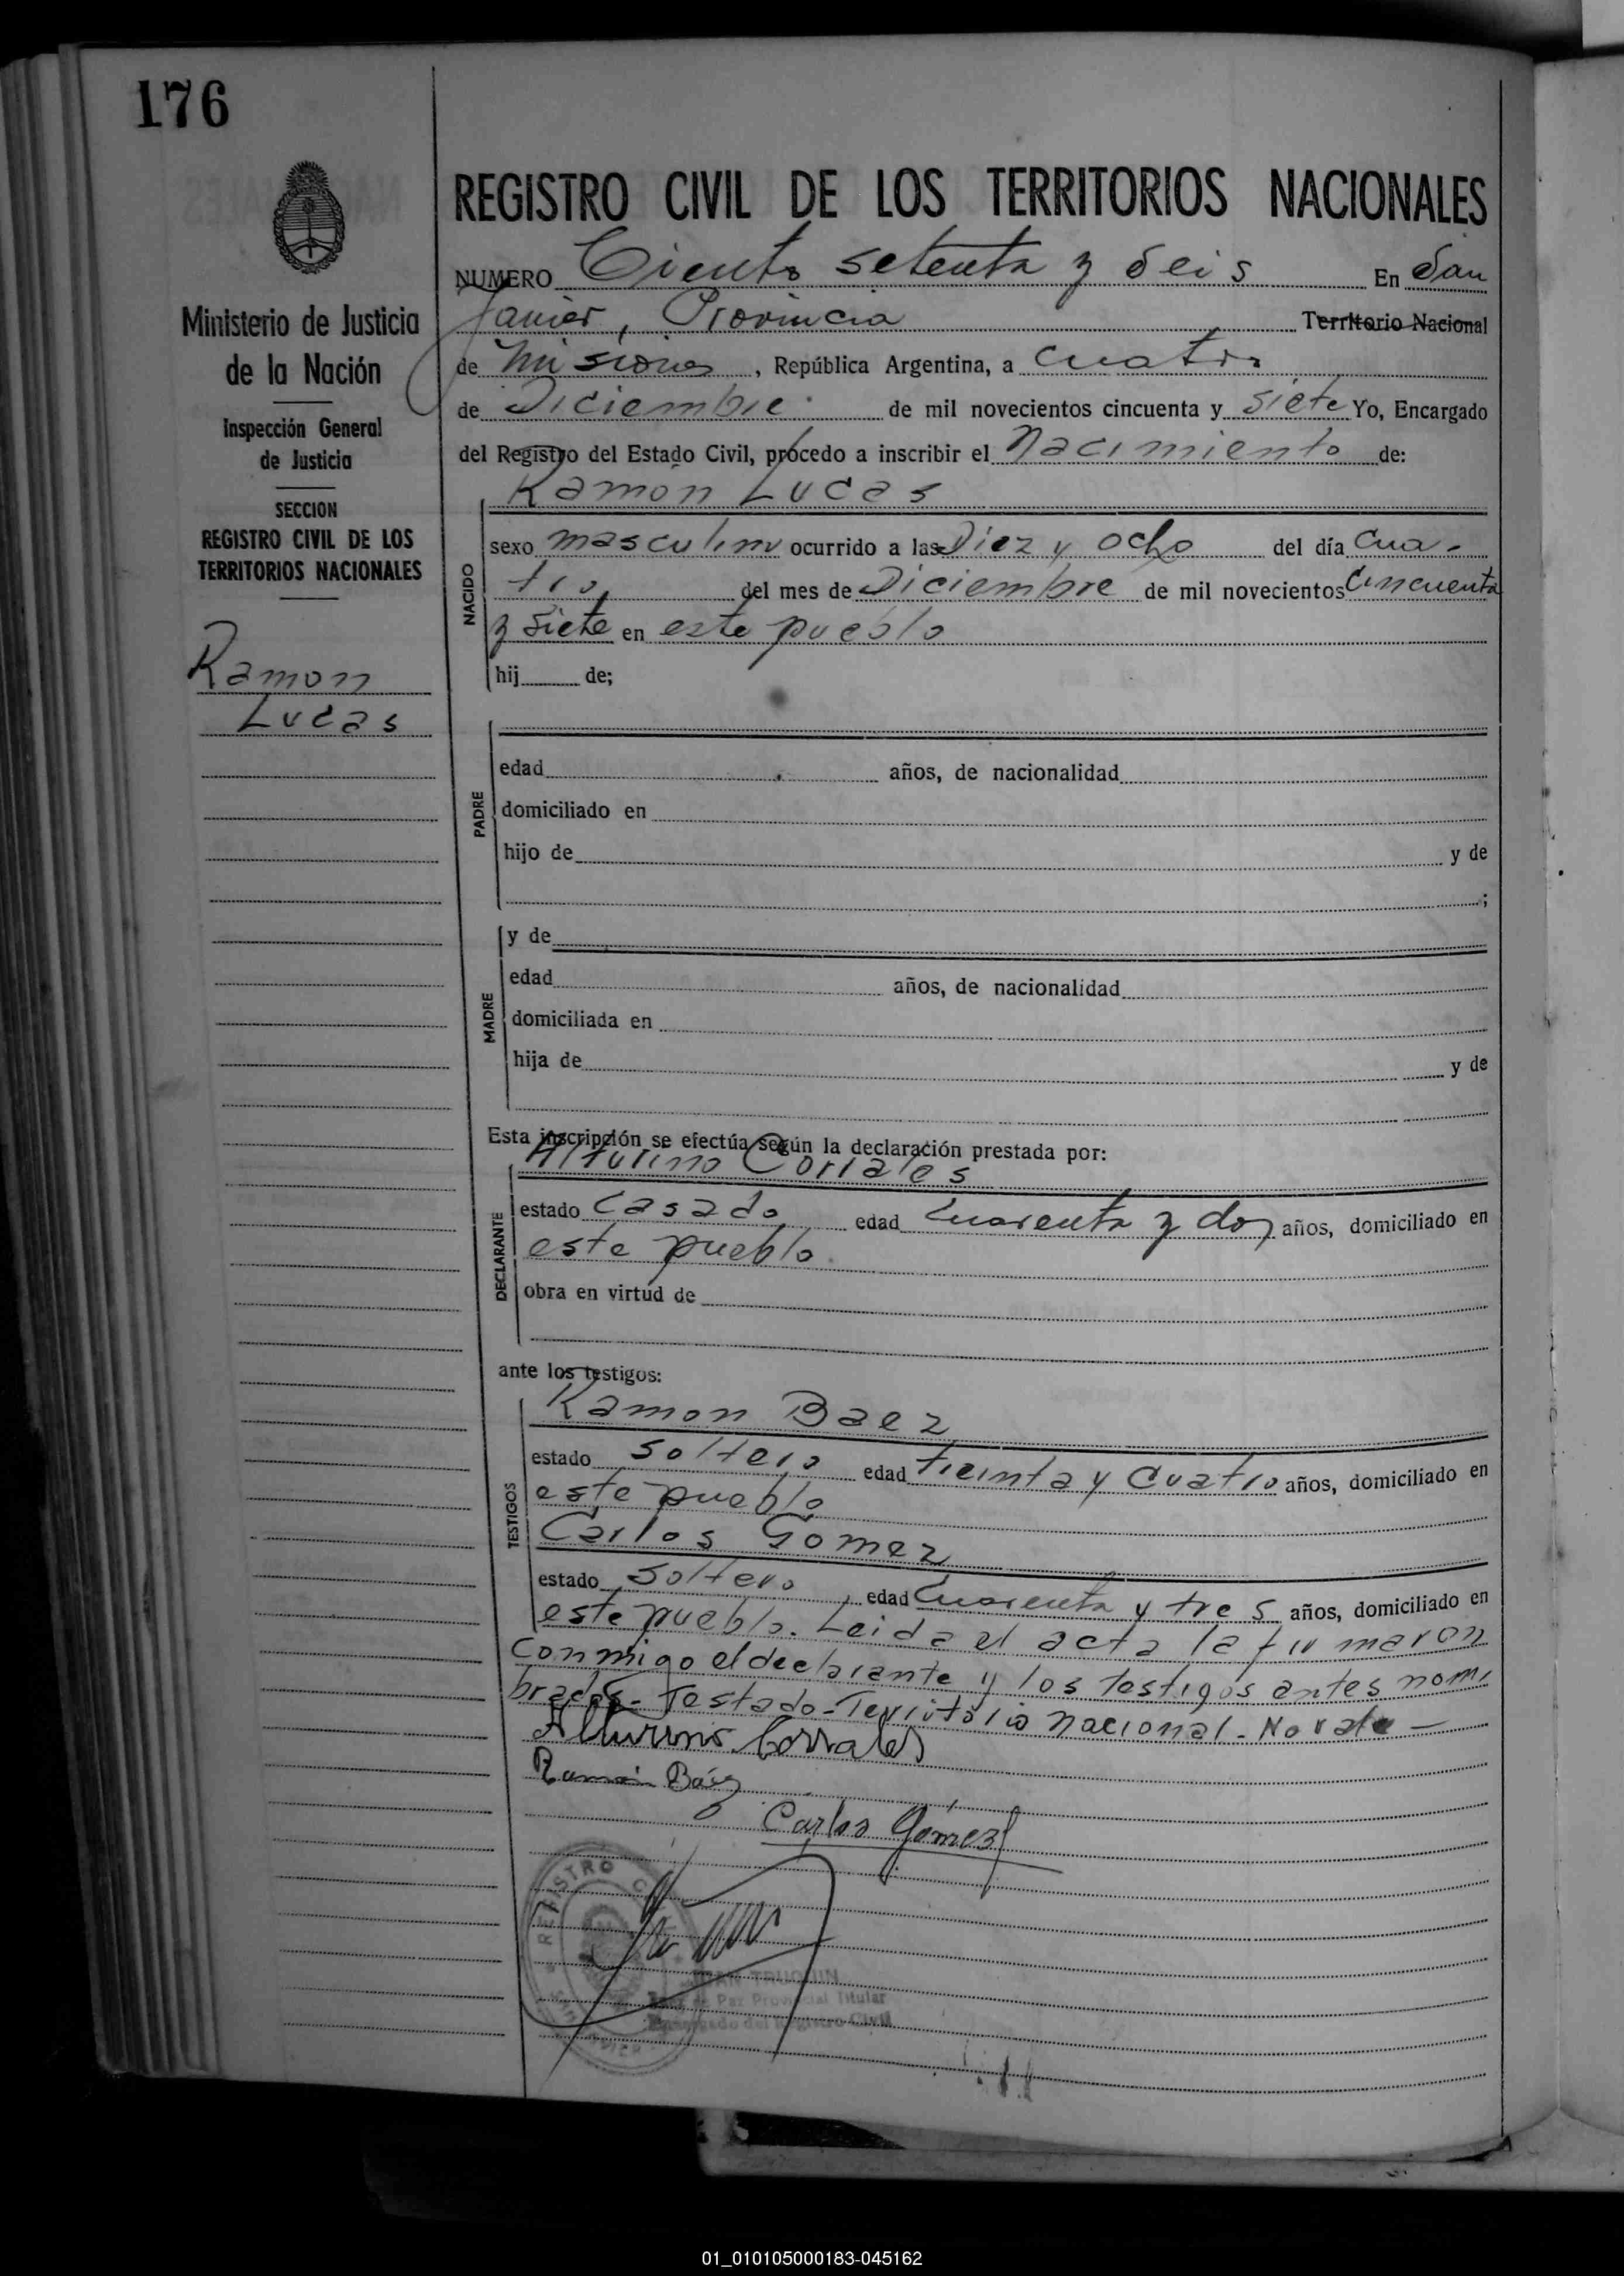 176
Ministerio de Justicia
de la Nación
Inspección General
de Justicia
SECCION
REGISTRO CIVIL DE LOS
TERRITORIOS NACIONALES
Ramon
Lucas
REGISTRO CIVIL DE LOS TERRITORIOS NACIONALES
NUMERO Ciento setenta y seis En San
Javier, Provincia Territorio Nacional
de Misiones, República Argentina, a cuatro
de Diciembre de mil novecientos cincuenta y siete Yo, Encargado
del Registro del Estado Civil, procedo a inscribir el Nacimiento de:
Ramon Lucas
NACIDO
sexo masculino ocurrido a las Diez y ocho del día Cua-
tro del mes de Diciembre de mil novecientos Cincuenta
y siete en este pueblo
hij de;
PADRE
edad años, de nacionalidad
domiciliado en
hijo de y de
;
MADRE
y de
edad años, de nacionalidad
domiciliada en
hija de y de
Esta inscripción se efectúa según la declaración prestada por:
Corrales
DECLARANTE
estado Casado edad Cuarenta y dos años, domiciliado en
este pueblo
obra en virtud de
ante los testigos:
TESTIGOS
Ramon Baez
estado soltero edad treinta y cuatro años, domiciliado en
este pueblo
Carlos Gomez
estado Soltero edad Cuarenta y tres años, domiciliado en
este pueblo. Leida el acta la firmaron
conmigo el declarante y los testigos antes nom
brados- Testado- Territorio Nacional- No vale-
Corrales
Ramón Báez
Carlos Gómez
REGISTRO
JUAN TRUQUIN
Juez de Paz Provincial Titular
Encargado del Registro Civil
01_010105000183-045162